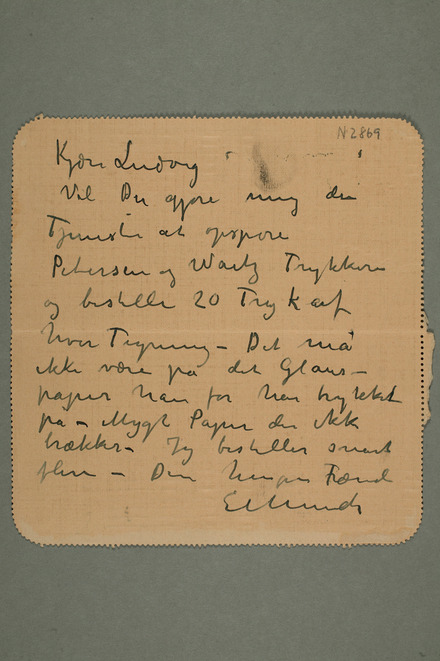 N 2869
Kjære Ludvig
Vil Du gjøre mig den
Tjeneste at opspøre
Petersen og Waitz Trykkeri
og bestille 20 Tryk af
hver Tegning – Det må
ikke være på det Glans–
papir han før har trykket
på – Mygt Papir der ikke
trækker – Jeg bestiller snart
flere – Din hengivne Frænde
E Munch